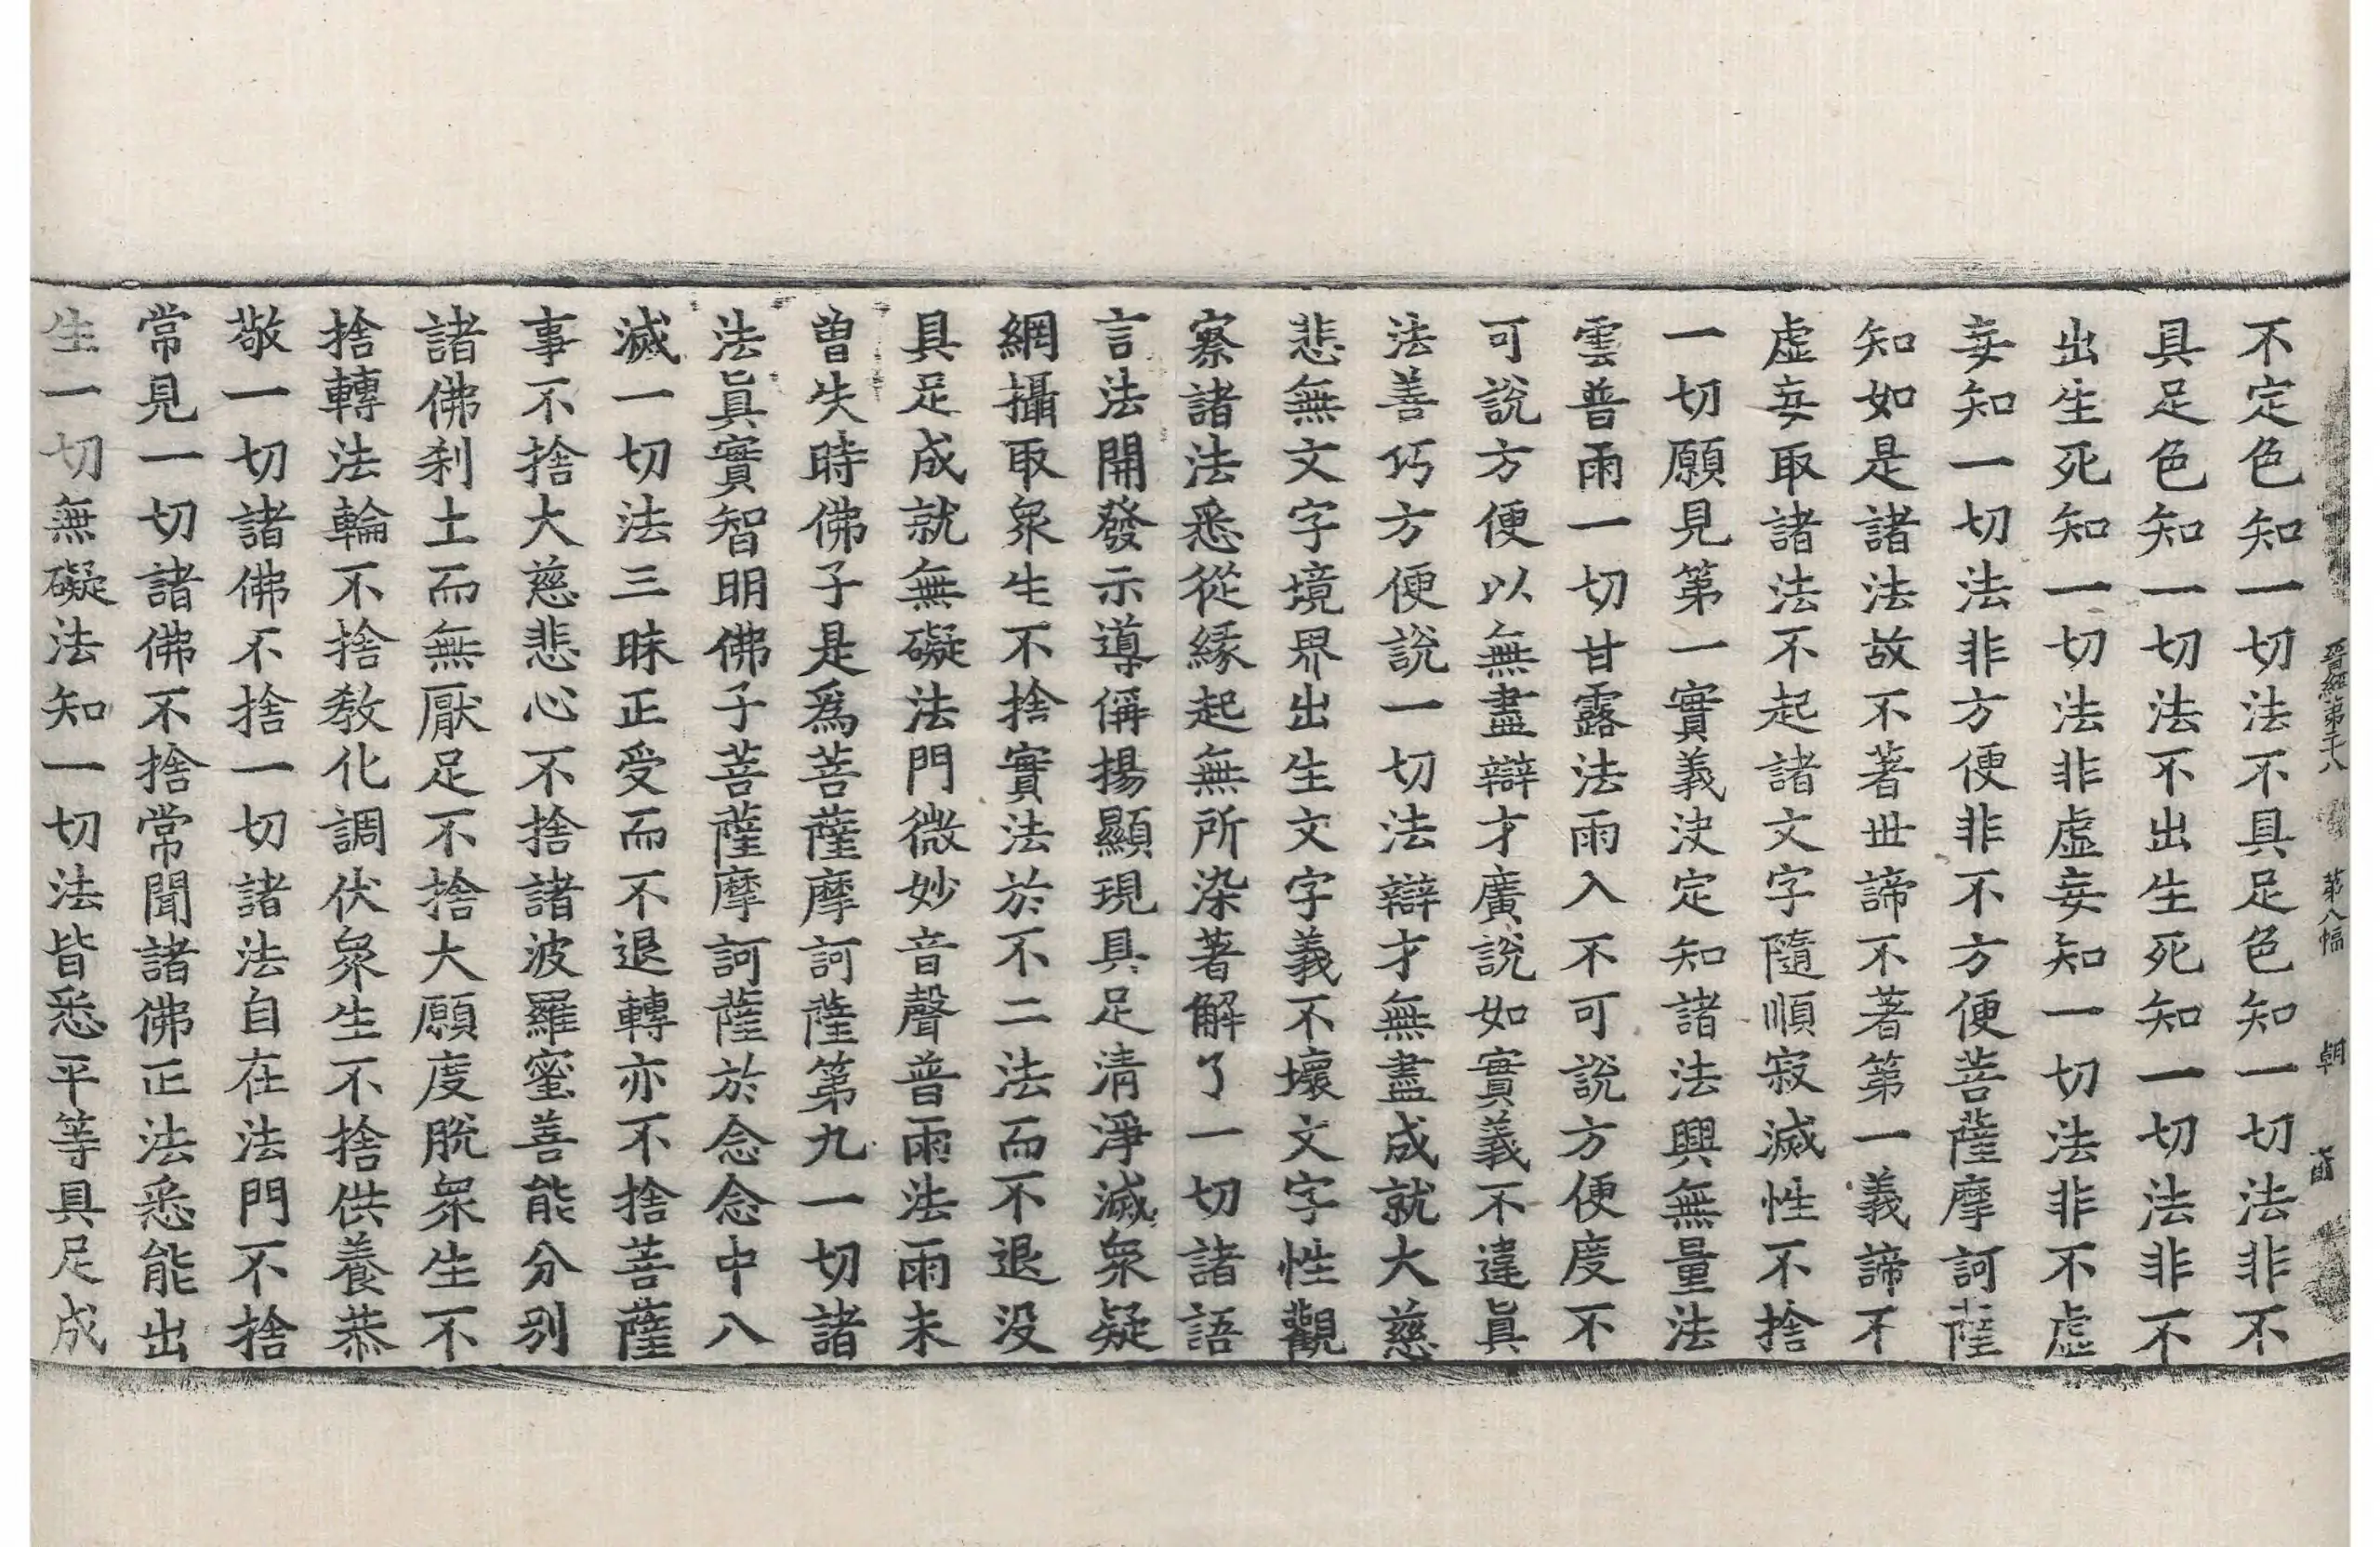 晉經第二十八 第八幅 朝
不定色知一切法不具足色知一切法非不
具足色知一切法不出生死知一切法非不
出生死知一切法非虛妄知一切法非不虛
妄知一切法非方便非不方便菩薩摩訶薩
知如是諸法故不著世諦不著第一義諦不
虛妄取諸法不起諸文字隨順寂滅性不捨
一切願見第一實義決定知諸法興無量法
雲普雨一切甘露法雨入不可說方便度不
可說方便以無盡辯才廣說如實義不違眞
法善巧方便說一切法辯才無盡成就大慈
悲無文字境界出生文字義不壞文字性觀
察諸法悉從緣起無所染著解了一切諸語
言法開發示導稱揚顯現具足清淨滅衆疑
網攝取衆生不捨實法於不二法而不退没
具足成就無礙法門微妙音聲普雨法雨未
曾失時佛子是爲菩薩摩訶薩第九一切諸
法眞實智明佛子菩薩摩訶薩於念念中八
滅一切法三昧正受而不退轉亦不捨菩薩
事不捨大慈悲心不捨諸波羅蜜善能分別
諸佛刹土而無厭足不捨大願度脫衆生不
捨轉法輪不捨教化調伏衆生不捨供養恭
敬一切諸佛不捨一切諸法自在法門不捨
常見一切諸佛不捨常聞諸佛正法悉能出
生一切無礙法知一切法皆悉平等具足成